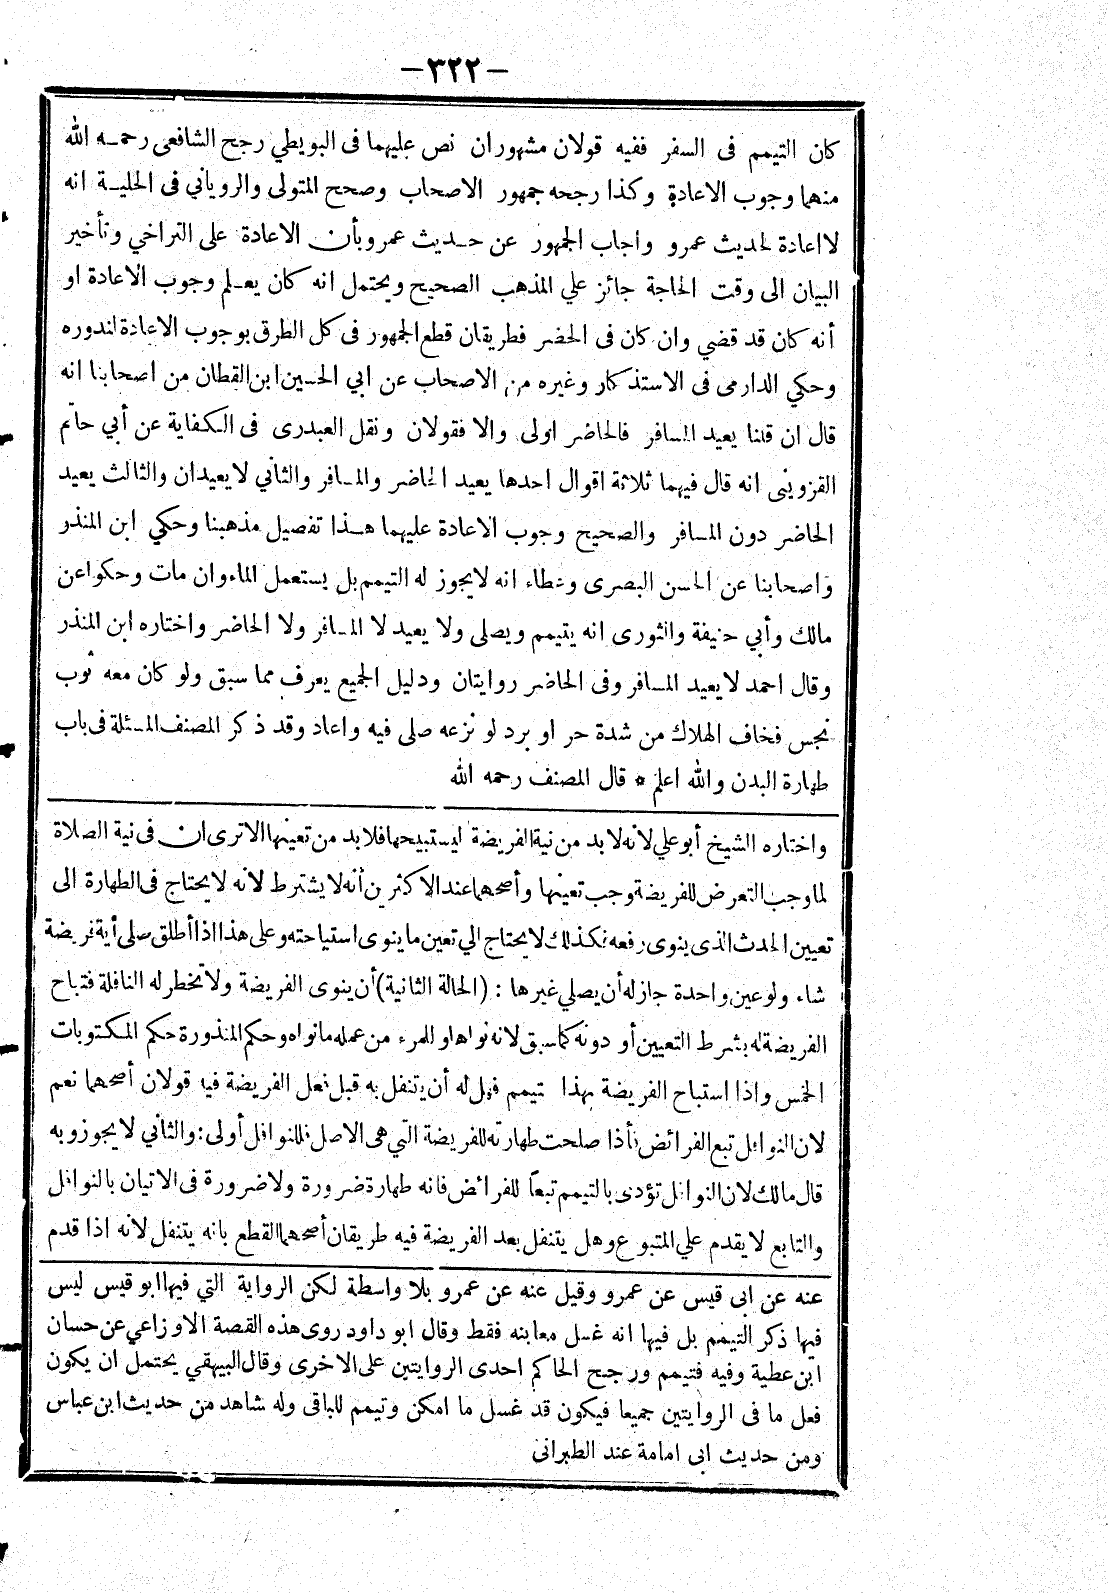 -٣٢٢-
كان التيمم فى السفر ففيه قولان مشهوران نص عليهما فى البويطي رجح الشافعى رحمه الله
منهما وجوب الاعادة وكذا رجحه جمهور الاصحاب وصحح المتولى والروياني فى الحلية انه
لا اعادة لحديث عمرو واجاب الجمهور عن حديث عمرو بأن الاعادة على التراخي وتأخير
البيان الى وقت الحاجة جائز علي المذهب الصحيح ويحتمل انه كان يعلم وجوب الاعادة او
أنه كان قد قضي وان كان فى الحضر فطريقان قطع الجمهور فى كل الطرق بوجوب الاعادة لندوره
وحكي الدارمى فى الاستذكار وغيره من الاصحاب عن ابي الحسين ابن القطان من اصحابنا انه
قال ان قلنا يعيد المسافر فالحاضر اولى والا فقولان ونقل العبدرى فى الكفاية عن أبي حاتم
القزوينى انه قال فيهما ثلاثة اقوال احدها يعيد الحاضر والمسافر والثاني لا يعيدان والثالث يعيد
الحاضر دون المسافر والصحيح وجوب الاعادة عليهما هذا تفصيل مذهبنا وحكي ابن المنذو
واصحابنا عن الحسن البصرى وعطاء انه لا يجوز له التيمم بل يستعمل الماء وان مات وحكوا عن
مالك وأبي حنيفة والثورى انه يتيمم ويصلى ولا يعيد لا المسافر ولا الحاضر واختاره ابن المنذر
وقال احمد لا يعيد المسافر وفى الحاضر روايتان ودليل الجميع يعرف مما سبق ولو كان معه ثوب
نجس فخاف الهلاك من شدة حر او برد لو نزعه صلى فيه واعاد وقد ذكر المصنف المسئلة فى باب
طهارة البدن والله اعلم * قال المصنف رحمه الله
واختاره الشيخ أبو علي لأنه لا بد من نية الفريضة ليستبيحها فلا بد من تعيينها الا ترى ان فى نية الصلاة
لما وجب التعرض للفريضة وجب تعيينها وأصحهما عند الاكثرين أنه لا يشترط لأنه لا يحتاج فى الطهارة الى
تعيين الحدث الذى ينوى رفعه فكذلك لا يحتاج الي تعين ما ينوى استباحته وعلى هذا اذا أطلق صلى أية فريضة
شاء ولو عين واحدة جاز له أن يصلي غيرها : (الحالة الثانية) أن ينوى الفريضة ولا تخطر له النافلة فتباح
الفريضة له بشرط التعيين أو دونه كما سبق لانه نواها وللمرء من عمله ما نواه وحكم المنذورة حكم المكتوبات
الخمس واذا استباح الفريضة بهذا تيمم فهل له أن يتنفل به قبل فعل الفريضة فيه قولان أصحهما نعم
لان النوافل تبع الفرائض فأذا صلحت طهارته للفريضة التي هى الاصل فللنوافل أولى : والثاني لا يجوز وبه
قال مالك لان النوافل تؤدى بالتيمم تبعاً للفرائض فانه طهارة ضرورة ولا ضرورة فى الاتيان بالنوافل
والتابع لا يقدم علي المتبوع وهل يتنفل بعد الفريضة فيه طريقان أصحهما القطع بانه يتنفل لأنه اذا قدم
عنه عن ابى قيس عن عمرو وقيل عنه عن عمرو بلا واسطة لكن الرواية التي فيها ابو قيس ليس
فيها ذكر التيمم بل فيها انه غسل معابنه فقط وقال ابو داود روى هذه القصة الاوزاعي عن حسان
ابن عطية وفيه فتيمم ورجح الحاكم احدى الروايتين على الاخرى وقال البيهقي يحتمل ان يكون
فعل ما فى الروايتين جميعا فيكون قد غسل ما امكن وتيمم للباقى وله شاهد من حديث ابن عباس
ومن حديث ابى امامة عند الطبرانى